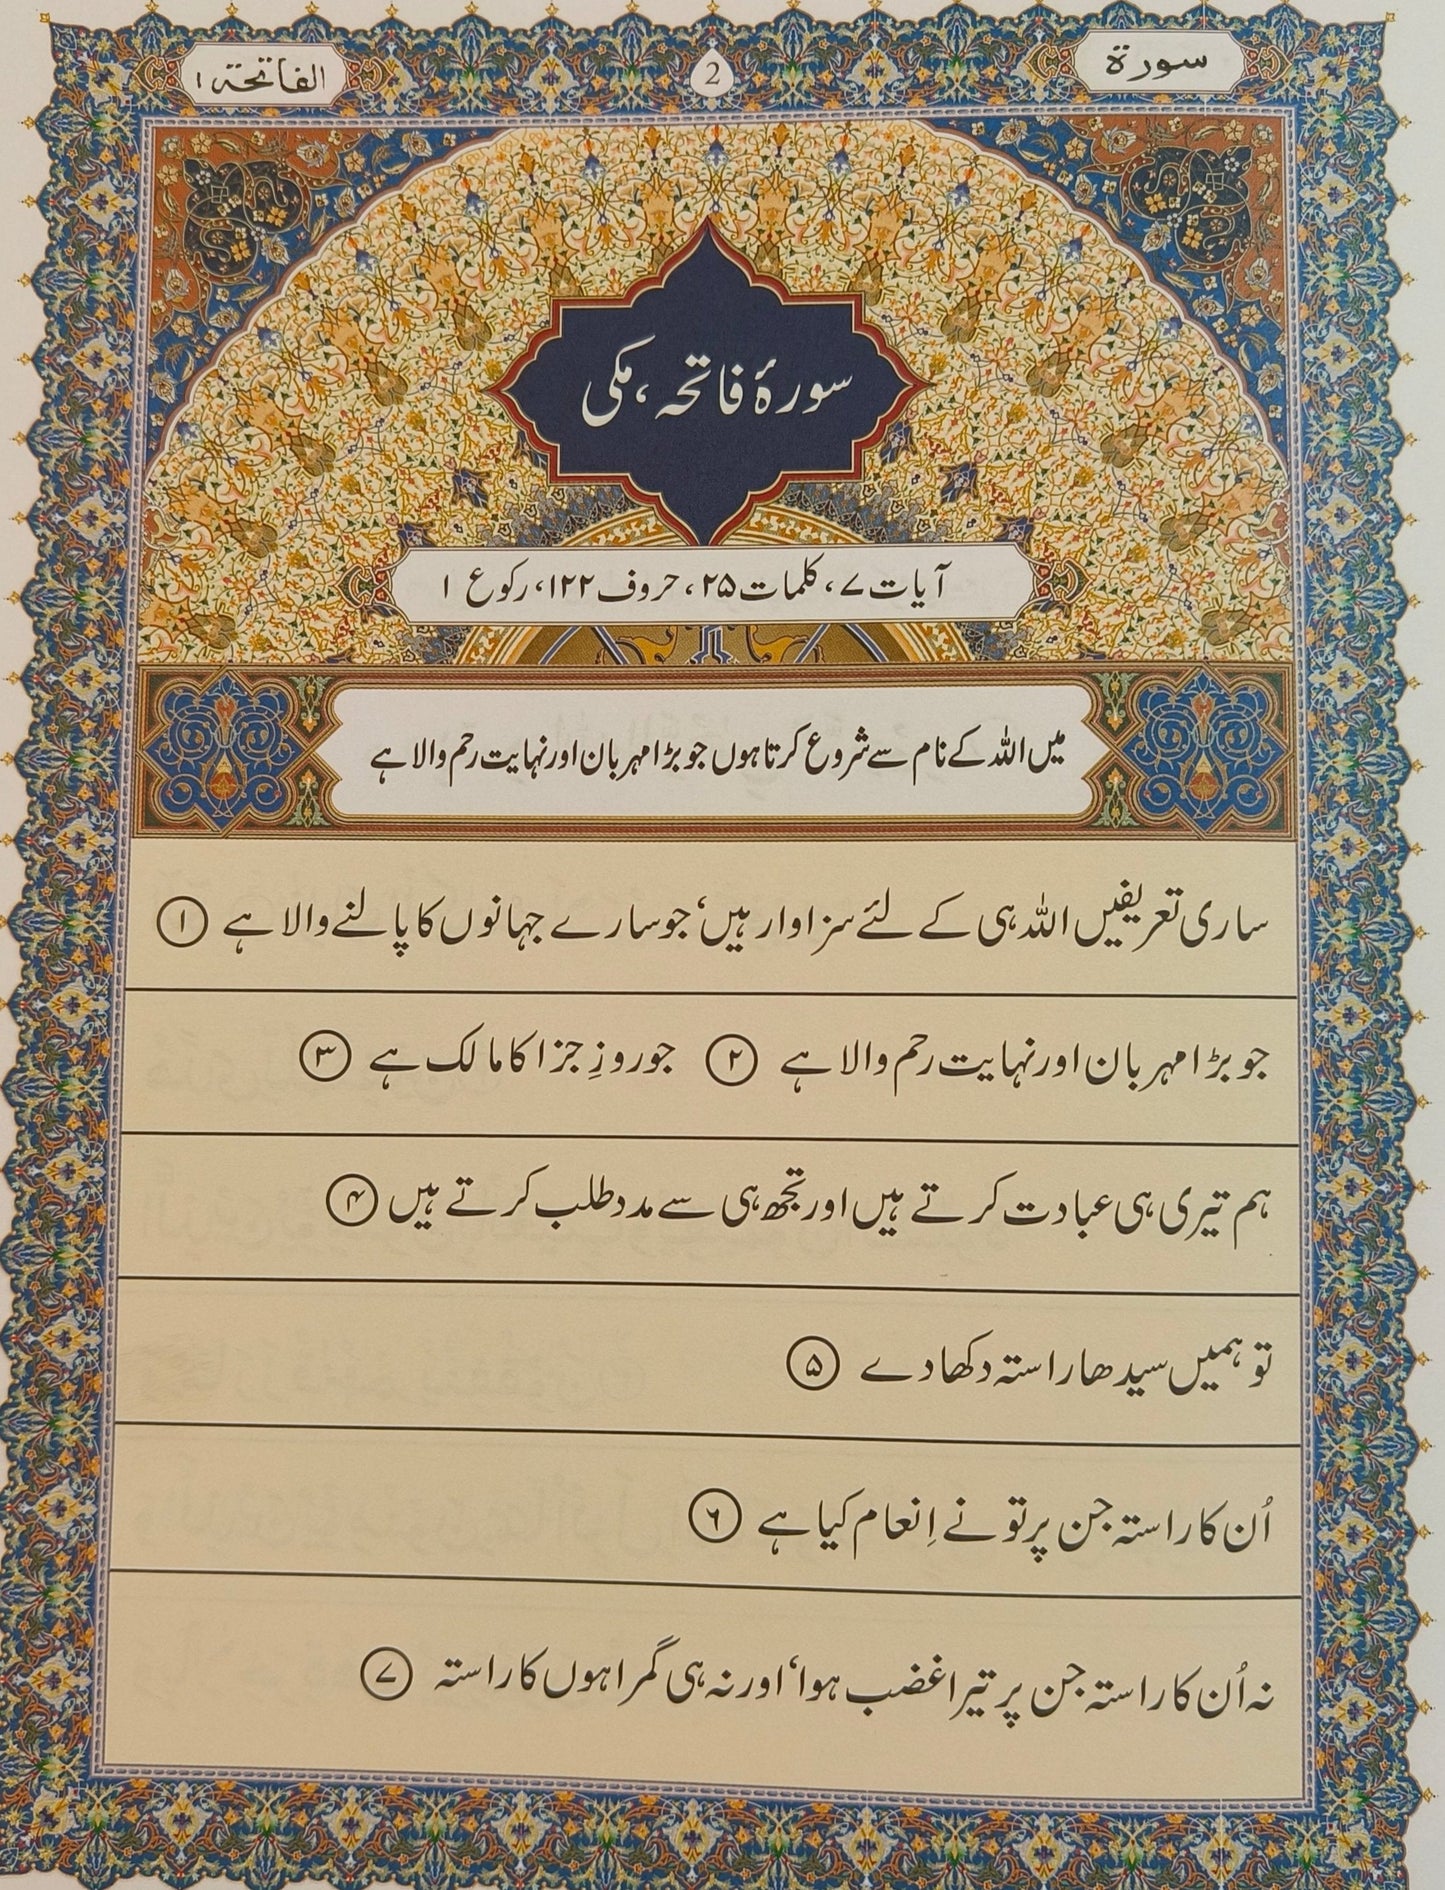 سورۃ
2
الفاتحة ۱
سورۂ فاتحہ، مکی
آیات ۷، کلمات ۲۵، حروف ۱۲۲، رکوع ۱
میں اللہ کے نام سے شروع کرتا ہوں جو بڑا مہربان اور نہایت رحم والا ہے
ساری تعریفیں اللہ ہی کے لئے سزاوار ہیں، جو سارے جہانوں کا پالنے والا ہے ۱
جو بڑا مہربان اور نہایت رحم والا ہے ۲ جو روزِ جزا کا مالک ہے ۳
ہم تیری ہی عبادت کرتے ہیں اور تجھ ہی سے مدد طلب کرتے ہیں ۴
تو ہمیں سیدھا راستہ دکھا دے ۵
اُن کا راستہ جن پر تو نے اِنعام کیا ہے ۶
نہ اُن کا راستہ جن پر تیرا غضب ہوا، اور نہ ہی گمراہوں کا راستہ ۷